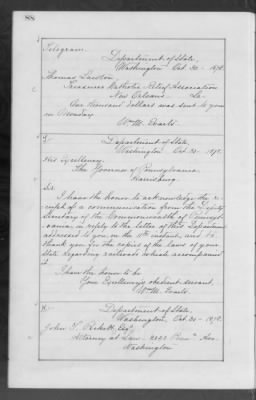 88
Telegram.
Department of State,
Washington Oct. 30 - 1878.
Thomas
Treasurer Catholic Relief Association
New Orleans La.
One thousand dollars was sent to you
on Monday
Wm. M. Evarts.
Department of State,
Washington Oct. 31 - 1878.
His Excellency,
The Governor of Pennsylvania.
Harrisburg.
Sir:
I have the honor to acknowledge the re-
ceipt of a communication from the Deputy
Secretary of the Commonwealth of Pennsyl-
vania, in reply to the letter of this Department
addressed to you on the instant, and to
thank you for the copies of the laws of your
State regarding railroads which accompanied
it.
I have the honor to be
Your Excellency's obedient servant.
Wm. M. Evarts.
Department of State,
Washington, Oct. 31 - 1878.
John Esq.
Attorney at Law. Ave.
Washington